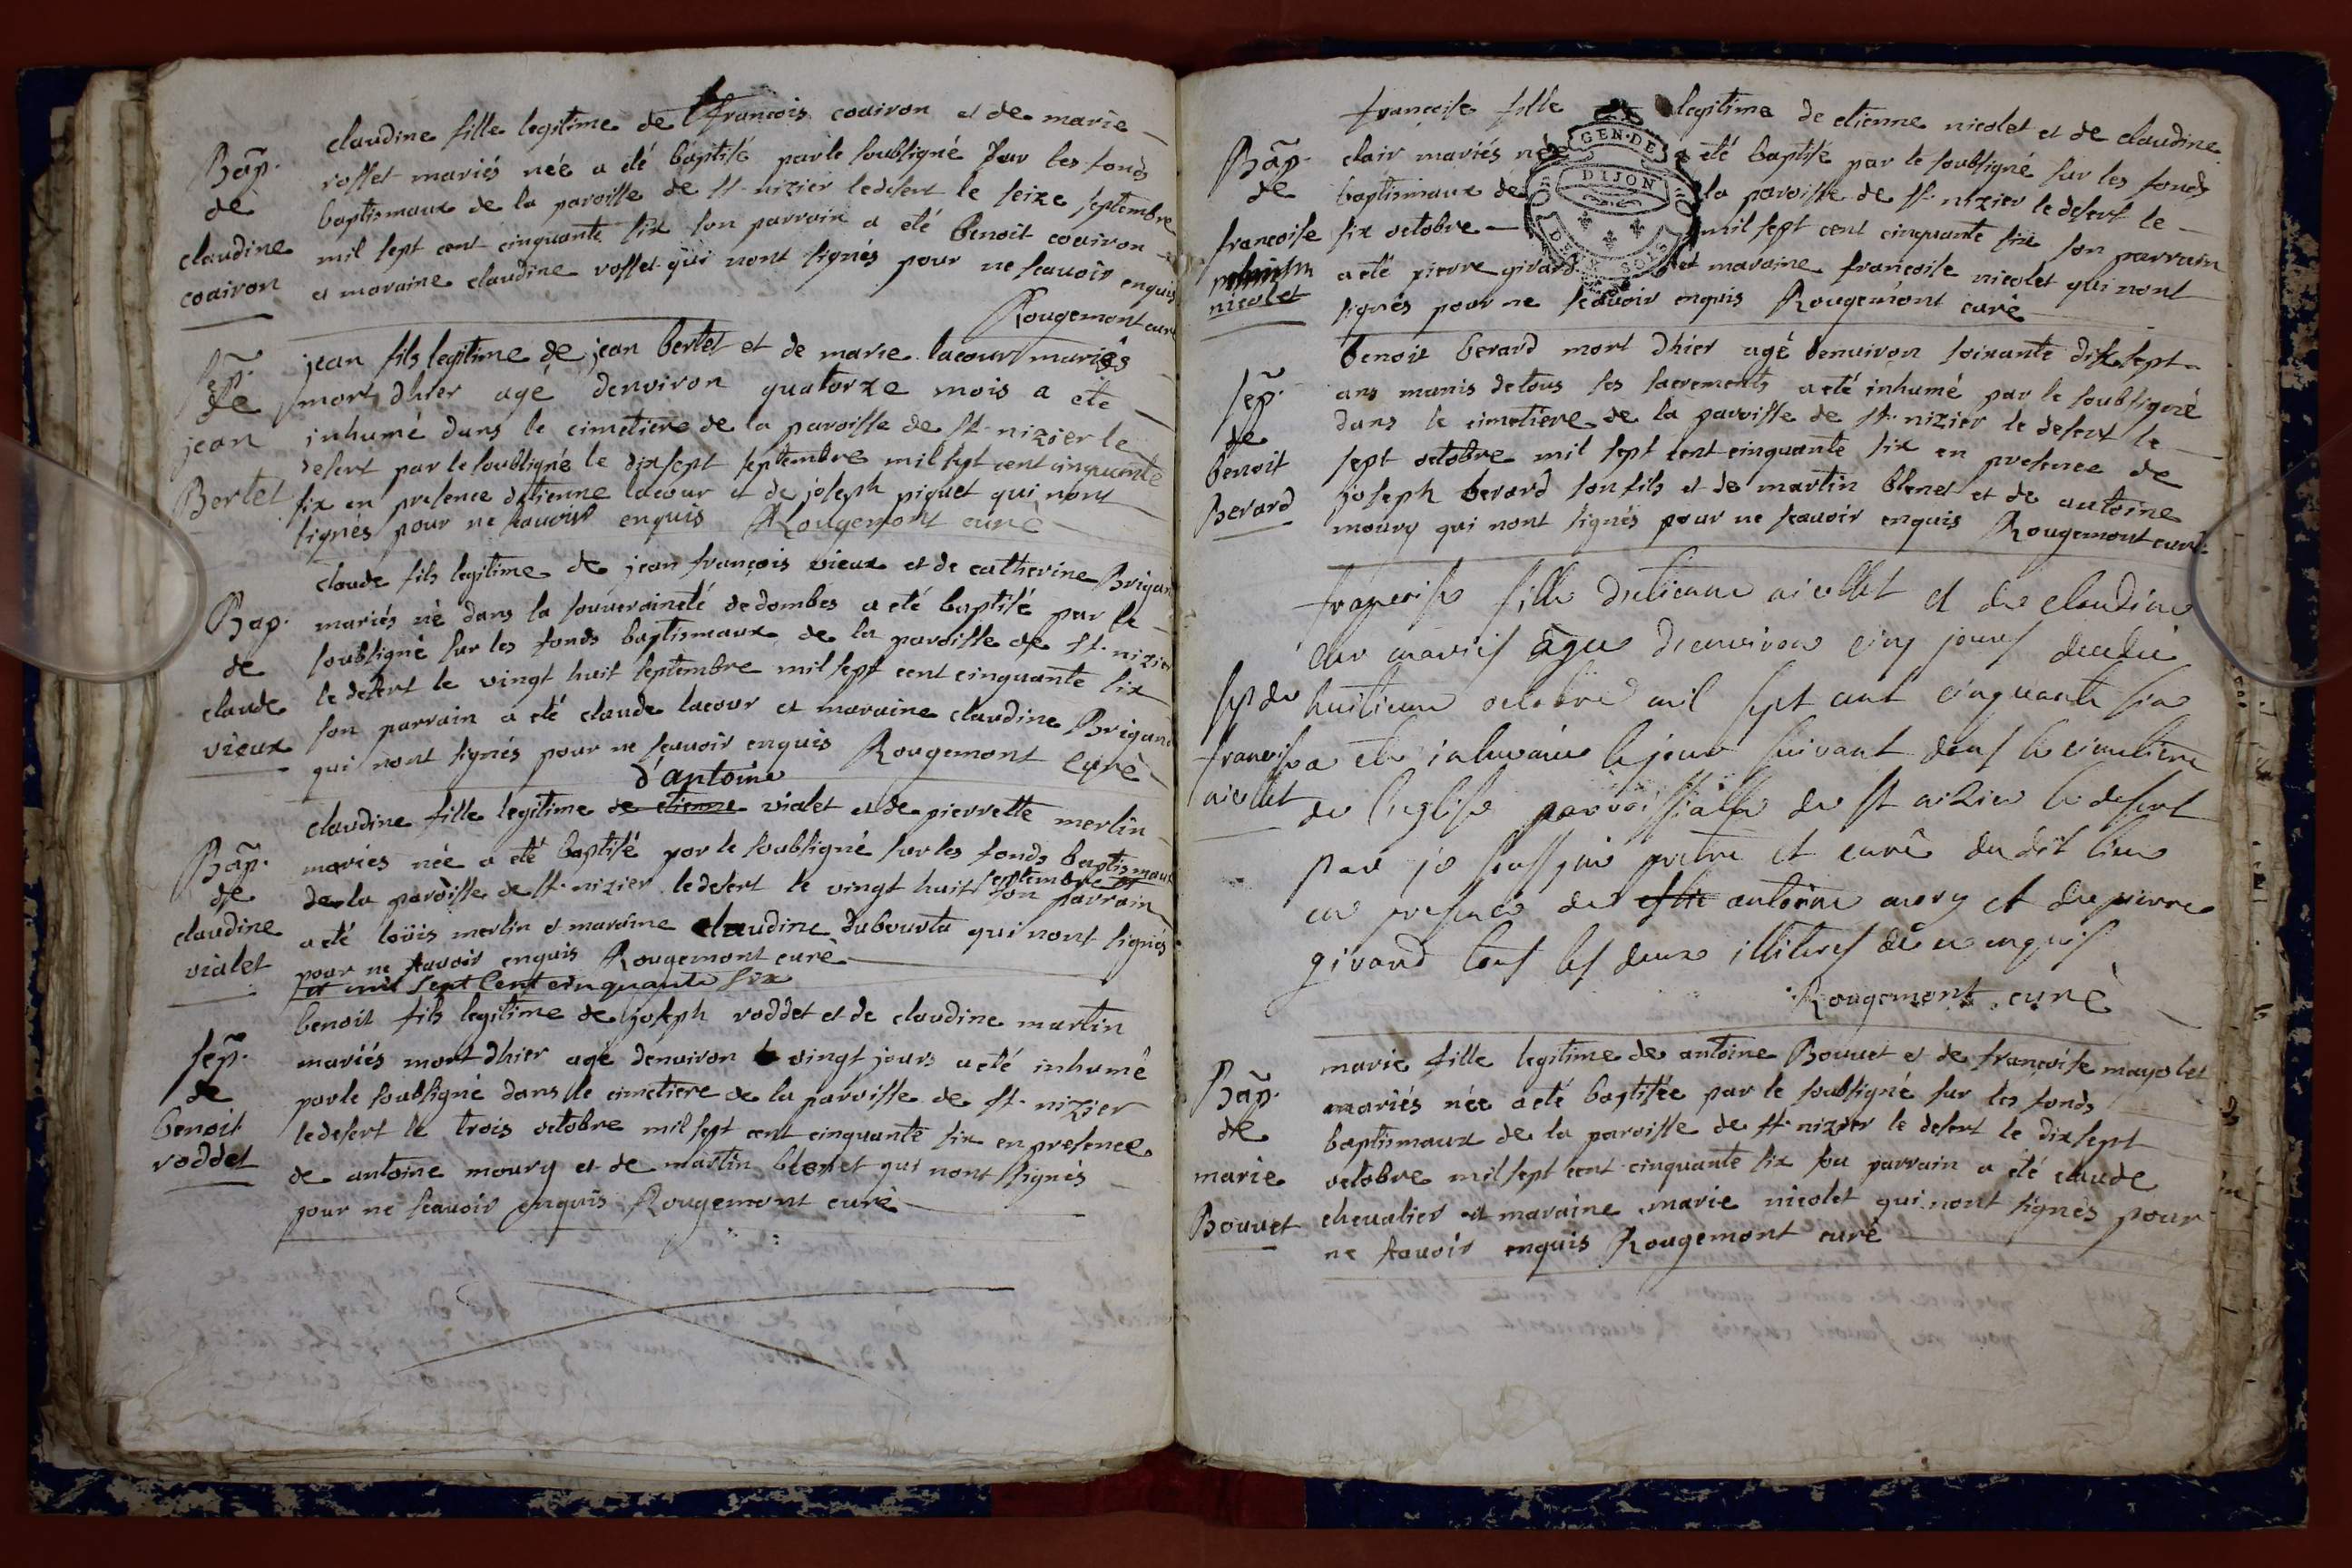 Bap.
de
claudine
coairon
claudine fille legitime de francois coairon et de marie
rosset mariés née a été baptisé par le soubsigné sur les fonds
baptismaux de la paroisse de st. nizier ledesert le seize septembre
mil sept cent cinquante six son parrain a eté benoit coairon
et maraine claudine rosset qui nont signés pour ne scavoir enquis
Rougemont curé
Sep.
de
jean
Bertet
jean fils legitime de jean bertet et de marie lacour mariés
mort dhier agé denviron quatorze mois a eté
inhumé dans le cimetiere de la paroisse de st. nizier le
desert par le soubsigné le dixsept septembre mil sept cent cinquante
six en presence detienne lacour et de joseph piquet qui nont
signés pour ne scavoir enquis Rougemont curé
Bap.
de
claude
vieux
claude fils legitime de jean françois vieux et de catherine Brigand
mariés né dans la souveraineté dedombes a eté baptisé par le
soubsigné sur les fonds baptismaux de la paroisse de st. nizier
le desert le vingt huit septembre mil sept cent cinquante six
son parrain a eté claude lacour et maraine claudine Brigand
qui nont signés pour ne scavoir enquis Rougemont curé
Bap.
de
claudine
vialet
d'antoine
claudine fille legitime de etienne vialet et de pierrette merlin
mariés née a eté baptisé par le soubsigné sur les fonds baptismaux
de la paroisse de st. nizier ledesert le vingt huit septembre son parrain
a eté loüis merlin et maraine claudine dubourta qui nont signés
pour ne scavoir enquis Rougemont curé
et mil sept cent cinquante six
Sep.
de
benoit
roddet
benoit fils legitime de joseph roddet et de claudine martin
mariés mort dhier agé denviron vingt jours a eté inhumé
par le soubsigné dans le cimetiere de la paroisse de st. nizier
ledesert le trois octobre mil sept cent cinquante six en presence
de antoine moury et de martin blonet qui nont signés
pour ne scavoir enquis Rougemont curé
Bap.
de
francoise
nicolet
françoise fille legitime de etienne nicolet et de claudine
clair mariés née a eté baptisé par le soubsigné sur les fonds
baptismaux de la paroisse de st. nizier le desert le
six octobre mil sept cent cinquante six son parrain
a eté pierre girard et maraine françoise nicolet qui nont
signés pour ne scavoir enquis Rougemont curé
GEN. DE
DIJON
DEUX SOLS
Sep.
de
benoit
Berard
benoit berard mort dhier agé denviron soixante dix sept
ans munis de tous les sacrements a eté inhumé par le soubsigné
dans le cimetiere de la paroisse de st. nizier le desert le
sept octobre mil sept cent cinquante six en presence de
joseph berard son fils et de martin blonet et de antoine
moury qui nont signés pour ne scavoir enquis Rougemont curé
sep de
francoise
nicollet
françoise fille detienne nicollet et de claudine
cler mariés agee denviron cinq jours decedée
huitieme octobre mil sept cent cinquante six
a ete inhumée le jour suivant dans le cimetiere
de l'eglise parroissialle de st nizier le desert
par je soussigné pretre et curé du dit lieu
en presence de antoine mory et de pierre
girard tous les deux illiteres de ce enquis
Rougemont curé
Bap.
de
marie
Bouvet
marie fille legitime de antoine Bouvet et de françoise mayolet
mariés née a eté baptisée par le soubsigné sur les fonds
baptismaux de la paroisse de st. nizier le desert le dixsept
octobre mil sept cent cinquante six son parrain a eté claude
chevalier et maraine marie nicolet qui nont signés pour
ne scavoir enquis Rougemont curé